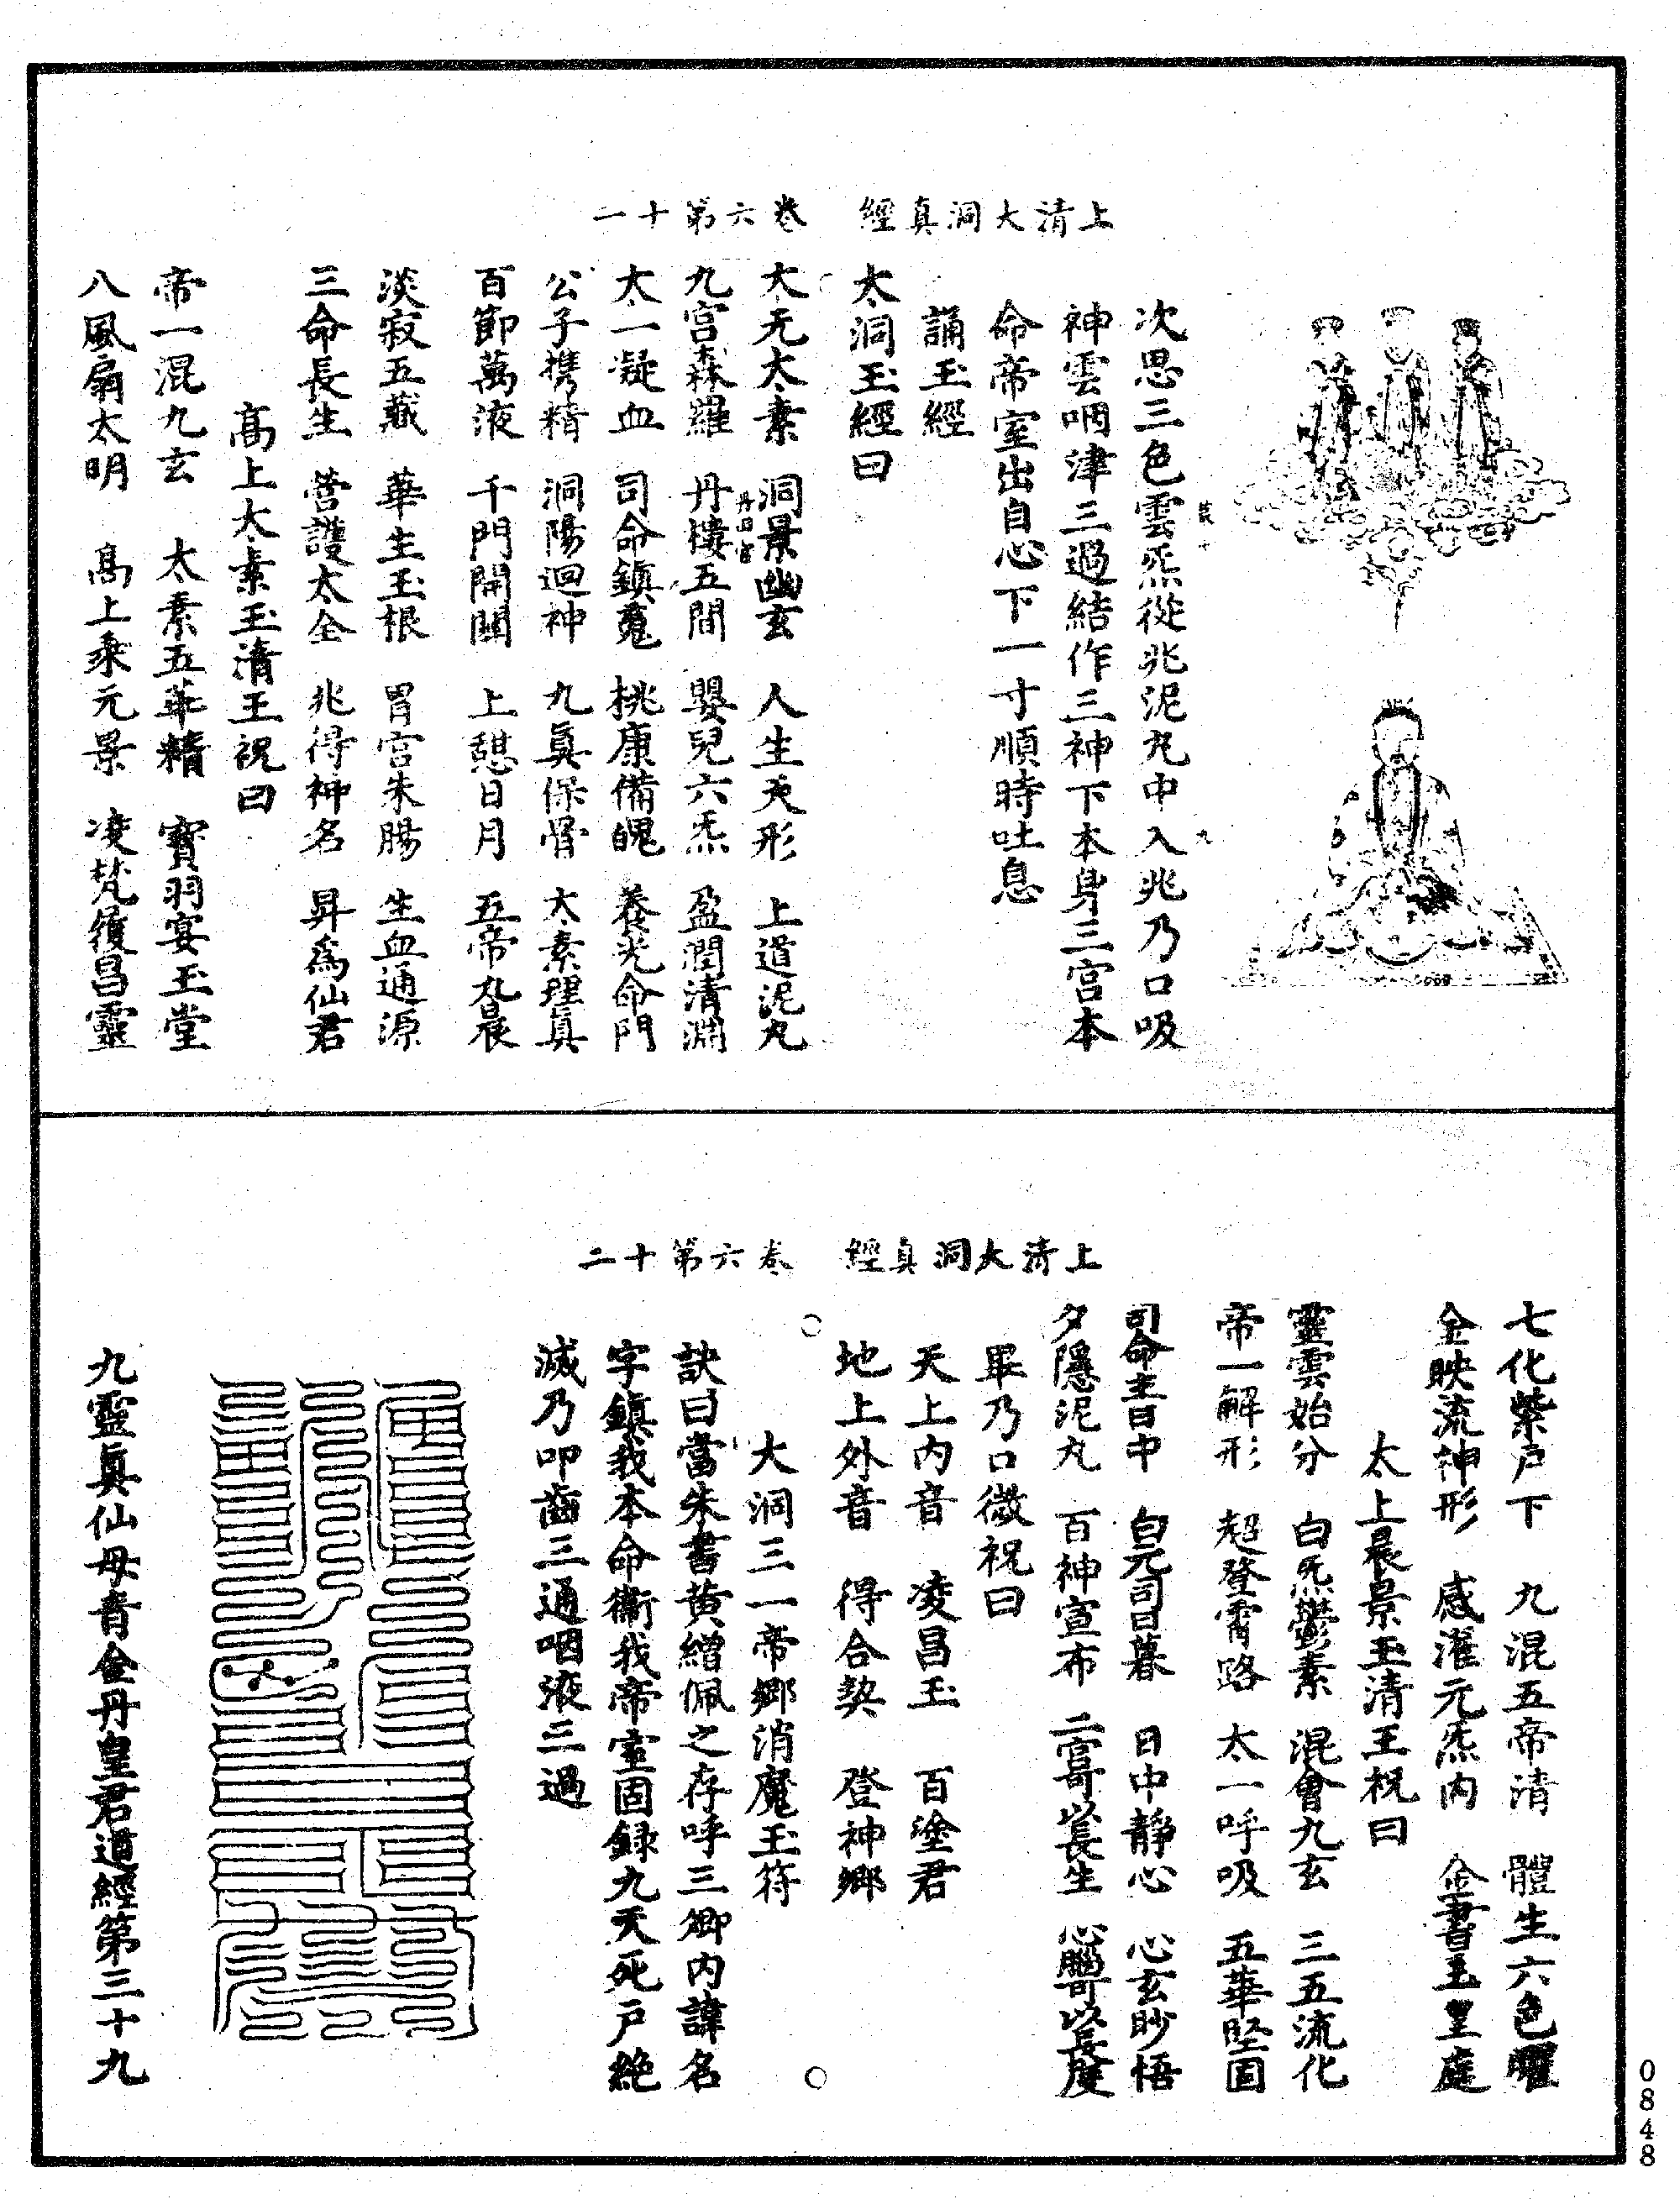 上清大洞真經　卷六第十一
次思三色雲炁從兆泥丸中入兆乃口吸
神雲咽津三過結作三神下本身三宮本
命帝室出自心下一寸順時吐息
誦玉經
太洞玉經曰
太无太素　洞景幽玄　人生天形　上道泥丸
九宮森羅　丹樓五間　嬰兒六炁　盈潤清淵
太一凝血　司命鎮䰟　桃康備魄　養光命門
公子攜精　洞陽迴神　九真保骨　太素理真
百節萬液　千門開關　上憩日月　五帝九晨
淡寂五藏　華生玉根　胃宮朱腸　生血通源
三命長生　營護太全　兆得神名　昇為仙君
高上太素玉清王祝曰
帝一混九玄　太素五華精　寶羽宴玉堂
八風扇太明　高上乘元景　凌梵履昌靈
上清大洞真經　卷六第十二
七化紫戶下　九混五帝清　體生六色曜
金映流神形　感灌元炁內　金書玉皇庭
太上晨景玉清王祝曰
靈雲始分　白炁鬱素　混會九玄　三五流化
帝一解形　超登霄路　太一呼吸　五華堅固
司命主日中　白元司日暮　日中靜心　心玄眇悟
夕隱泥丸　百神宣布　二哥以長生　心腸哥以長度
畢乃口微祝曰
天上內音　凌昌玉　百塗君
地上外音　得合契　登神鄉
大洞三一帝鄉消魔玉符
訣曰當朱書黃繒佩之存呼三卿內諱名
字鎮我本命衛我帝室固錄九天死戶絕
滅乃叩齒三通咽液三過
九靈真仙母青金丹皇君道經第三十九
0848